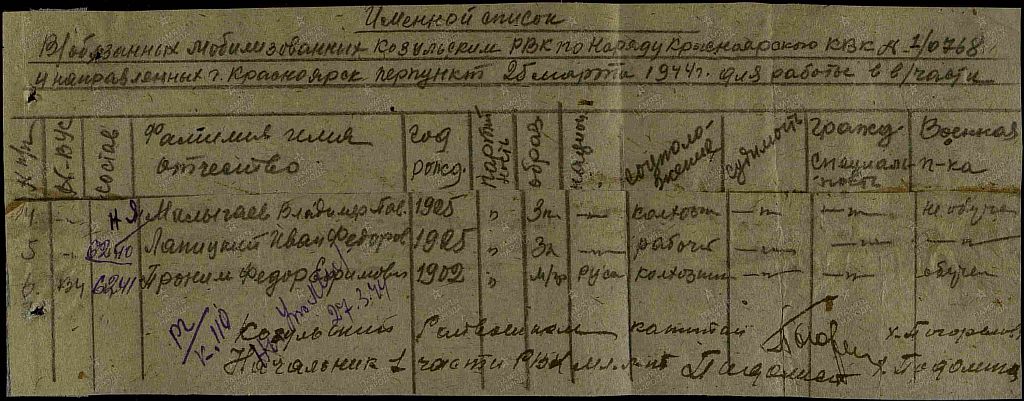 Именной список
В/обязанных мобилизованных Козульским РВК по Наряду Красноярского КВК № 1/0768
и направленных г. Красноярск перпункт 25 марта 1944 г. для работы в в/части
№ п/п № ВУС состав Фамилия имя отчество год рожд. партийность образ национ. соцположение судимость гражд. специальность Военная п-ка
4 - н я Малычаев Владимир Пав. 1925 " 3 п — колхозн —"— —"— не обучен
5 - 6240 Лапицкий Иван Федоров 1925 " 3 п — рабочий —"— —"— —"—
134 6241 Проким Федор Ефимович 1902 " м/гр Руса колхозник —"— —"— обучен
27.3.44
К. 110
Козульский Райвоенком — капитан х. Погорел
Начальник 1 части РВК мл. л-т х. Подолян